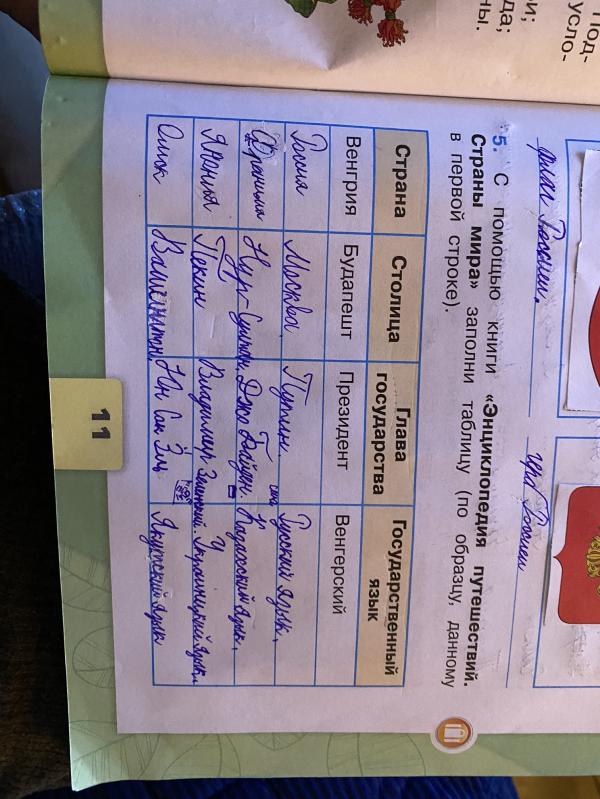 Под-
усло-
да;
ны.
флаг России.
герб России
5. С помощью книги «Энциклопедия путешествий.
Страны мира» заполни таблицу (по образцу, данному
в первой строке).
Страна Столица Глава государства Государственный язык
Венгрия Будапешт Президент Венгерский
Россия Москва Путин Русский язык.
Франция Нур-Султан Джо Байден. Казахский язык.
Япония Пекин Владимир Зеленский. язык.
Вашингтон Ин Якутский язык
11